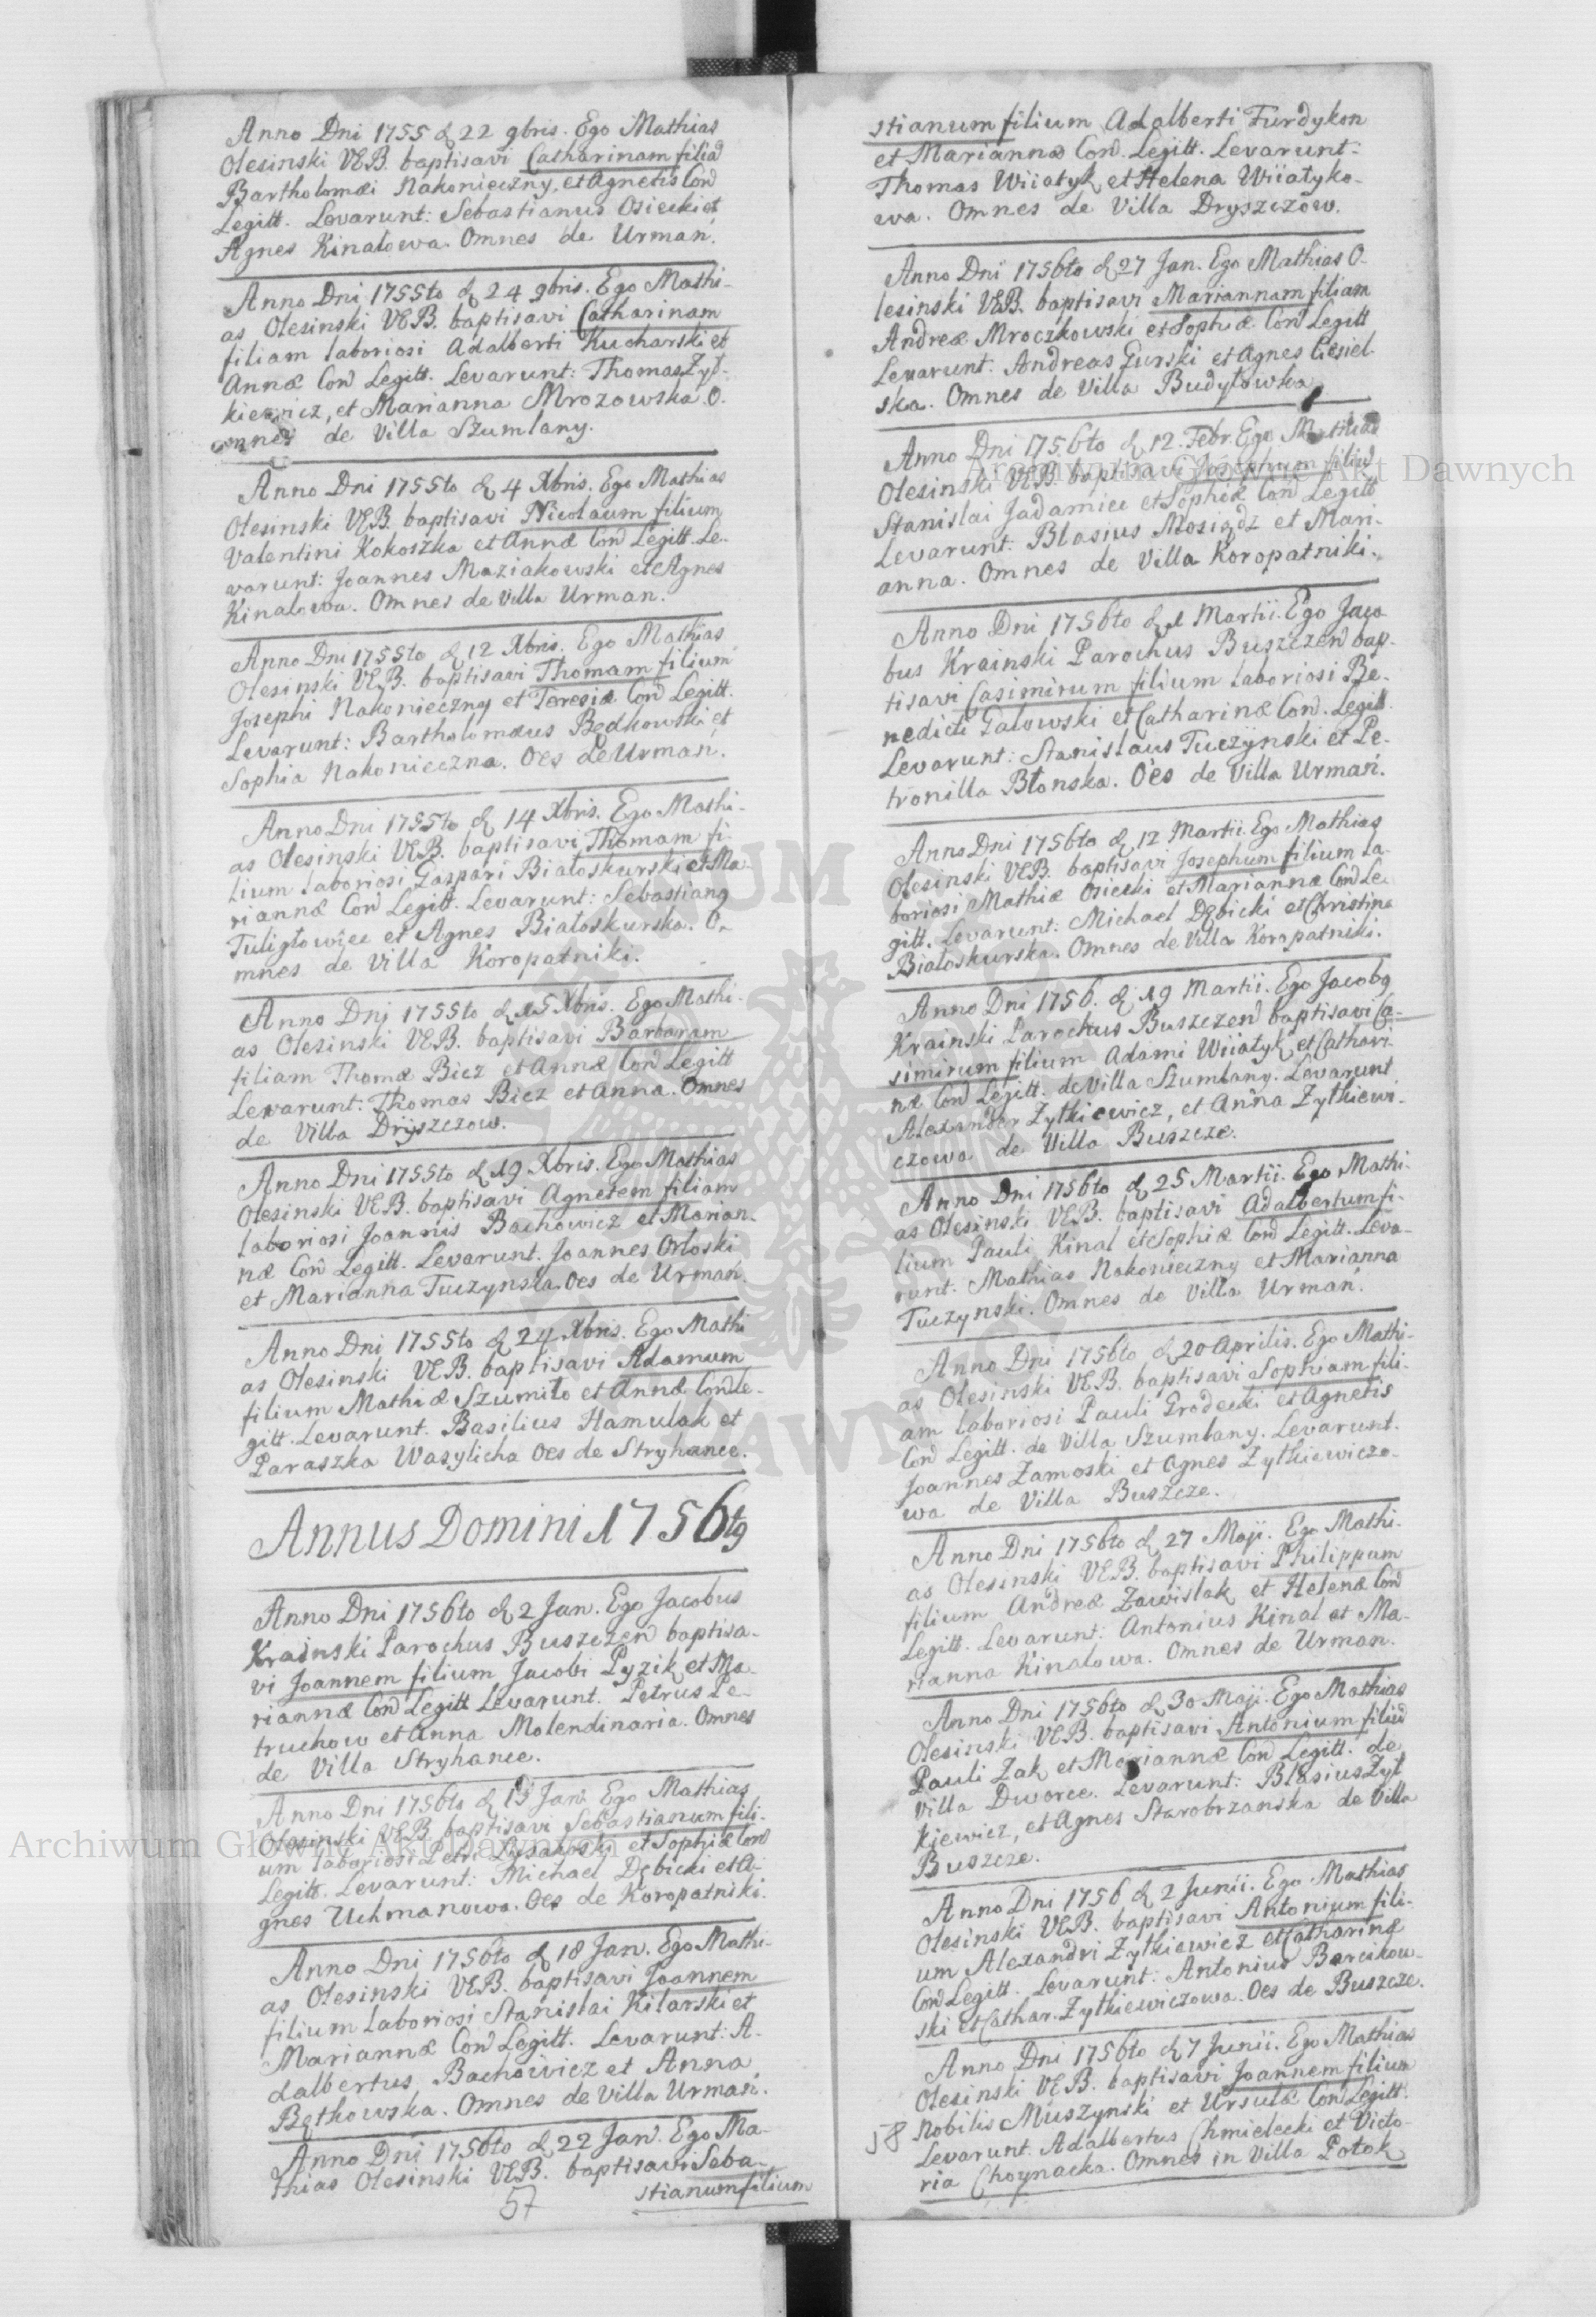 Anno Dni 1755 d 22 9bris. Ego Mathias
Olesinski VEB. baptisavi Catharinam filia
Bartholomæi Nakonieczny, et Agnetis Con
Legitt. Levarunt: Sebastianus Osiecki et
Agnes Kinalowa. Omnes de Urman.
Anno Dni 1755to d 24 9bris. Ego Mathi-
as Olesinski VEB. baptisavi Catharinam
filiam laboriosi Adalberti Kucharski et
Annæ Con Legitt. Levarunt: Thomas Zyt-
kiewicz, et Marianna Mrozowska. O-
mnes de Villa Szumlany.
Anno Dni 1755to d 4 Xbris. Ego Mathias
Olesinski VEB. baptisavi Nicolaum filium
Valentini Kokoszka et Annæ Con Legitt. Le-
varunt: Joannes Maziakowski et Agnes
Kinalowa. Omnes de Villa Urman.
Anno Dni 1755to d 12 Xbris. Ego Mathias
Olesinski VEB. baptisavi Thomam filium
Josephi Nakonieczny et Teresiæ Con Legitt.
Levarunt: Bartholomæus Będkowski et
Sophia Nakonieczna. Oes de Urman.
Anno Dni 1755to d 14 Xbris. Ego Mathi-
as Olesinski VEB. baptisavi Thomam fi-
lium laboriosi Gaspari Białoskurski et Ma-
riannæ Con Legitt. Levarunt: Sebastian9
Tuligłowiec et Agnes Białoskurska. O-
mnes de Villa Koropatniki.
Anno Dni 1755to d 15 Xbris. Ego Mathi-
as Olesinski VEB. baptisavi Barbaram
filiam Thomæ Biez et Annæ Con Legitt
Levarunt: Thomas Biez et Anna. Omnes
de Villa Dryszczow.
Anno Dni 1755to d 19 Xbris. Ego Mathias
Olesinski VEB. baptisavi Agnetem filiam
laboriosi Joannis Bachowicz et Marian-
næ Con Legitt. Levarunt. Joannes Orłoski
et Marianna Tuczynska. Oes de Urman.
Anno Dni 1755to d 24 Xbris. Ego Mathi
as Olesinski VEB. baptisavi Adamum
filium Mathiæ Szumiło et Annæ Con Le-
gitt. Levarunt. Basilius Hamulak et
Paraszka Wasylicha Oes de Stryhance.
Annus Domini 1756t9
Anno Dni 1756to d 2 Jan. Ego Jacobus
Krainski Parochus Buszczen baptisa-
vi Joannem filium Jacobi Pyzik et Ma-
riannæ Con Legitt Levarunt. Petrus Pe-
truchow et Anna Molendinaria. Omnes
de Villa Stryhance.
Anno Dni 1756to d Jan Ego Mathias
Olesinski VEB baptisavi Sebastianum fili-
um laboriosi Petri et Sophiæ Con
Legitt. Levarunt: Michael Dębicki et A-
gnes Uchmanowa. Oes de Koropatniki.
Anno Dni 1756to d 18 Jan. Ego Mathi-
as Olesinski VEB. baptisavi Joannem
filium laboriosi Stanislai Kilarski et
Mariannæ Con Legitt. Levarunt: A-
dalbertus Bachowicz et Anna
Bętkowska. Omnes de Villa Urman.
Anno Dni 1756to d 22 Jan. Ego Ma-
thias Olesinski VEB. baptisavi Seba-
57 stianum filium
stianum filium Adalberti Furdykon
et Mariannæ Con. Legitt. Levarunt:
Thomas Wiiatyk et Helena Wiiatyko-
wa. Omnes de Villa Dryszczow.
Anno Dni 1756to d 27 Jan. Ego Mathias O-
lesinski VEB. baptisavi Mariannam filiam
Andreæ Mroczkowski et Sophiæ Con Legitt
Levarunt. Andreas Gurski et Agnes Ciesiel-
ska. Omnes de Villa Budyłowka
Anno Dni 1756to d 12. Febr. Ego Mathias
Olesinski VEB. baptisavi Josephum filiu
Stanislai Jadamiec et Sophiæ Con Legitt
Levarunt: Blasius Mosiądz et Mari-
anna. Omnes de Villa Koropatniki.
Anno Dni 1756to d 1 Martii. Ego Jaco
bus Krainski Parochus Buszczen bap-
tisavi Casimirum filium laboriosi Be-
nedicti Galowski et Catharinæ Con. Legitt
Levarunt: Stanislaus Tuczynski et Pe-
tronilla Błonska. Oes de Villa Urman.
Anno Dni 1756to d 12 Martii Ego Mathias
Olesinski VEB. baptisavi Josephum filium la-
boriosi Mathiæ Osiecki et Mariannæ Con Le-
gitt. Levarunt: Michael Dębicki et Christina
Białoskurska. Omnes de Villa Koropatniki.
Anno Dni 1756. d 19 Martii. Ego Jacob9
Krainski Parochus Buszczen baptisavi Ca-
simirum filium Adami Wiiatyk et Cathari-
næ Con Legitt. de Villa Szumlany. Levarunt
Alexander Zytkiewicz, et Anna Zytkiewi-
czowa de Villa Buszcze.
Anno Dni 1756to d 25 Martii. Ego Mathi-
as Olesinski VEB. baptisavi Adalbertum fi-
lium Pauli Kinal et Sophiæ Con Legitt. Leva-
runt. Mathias Nakonieczny et Marianna
Tuczynski. Omnes de Villa Urman.
Anno Dni 1756to d 20 Aprilis. Ego Mathi-
as Olesinski VEB. baptisavi Sophiam fili-
am laboriosi Pauli Grodecki et Agnetis
Con Legitt. de Villa Szumlany. Levarunt.
Joannes Zamoski et Agnes Zytkiewiczo-
wa de Villa Buszcze.
Anno Dni 1756to d 27 Maji. Ego Mathi-
as Olesinski VEB. baptisavi Philippum
filium Andreæ Zawislak et Helenæ Con
Legitt. Levarunt: Antonius Kinal et Ma-
rianna Kinalowa. Omnes de Urman.
Anno Dni 1756to d 30 Maji. Ego Mathias
Olesinski VEB. baptisavi Antonium filiu
Pauli Zak et Mariannæ Con Legitt. de
Villa Dworce. Levarunt: Blasius Zyt
kiewicz, et Agnes Starobrzanska de Villa
Buszcze.
Anno Dni 1756 d 2 Junii. Ego Mathias
Olesinski VEB. baptisavi Antonium fili-
um Alexandri Zytkiewicz et Catharinæ
Con Legitt. Levarunt: Antonius Barcikow-
ski et Cathar. Zytkiewiczowa. Oes de Buszcze.
Anno Dni 1756to d 7 Junii. Ego Mathias
Olesinski VEB. baptisavi Joannem filium
58 Nobilis Muszynski et Ursulæ Con Legitt.
Levarunt. Adalbertus Chmielecki et Victo-
ria Choynacka. Omnes in Villa Potok
Archiwum Główne Akt Dawnych
Archiwum Główne Akt Dawnych